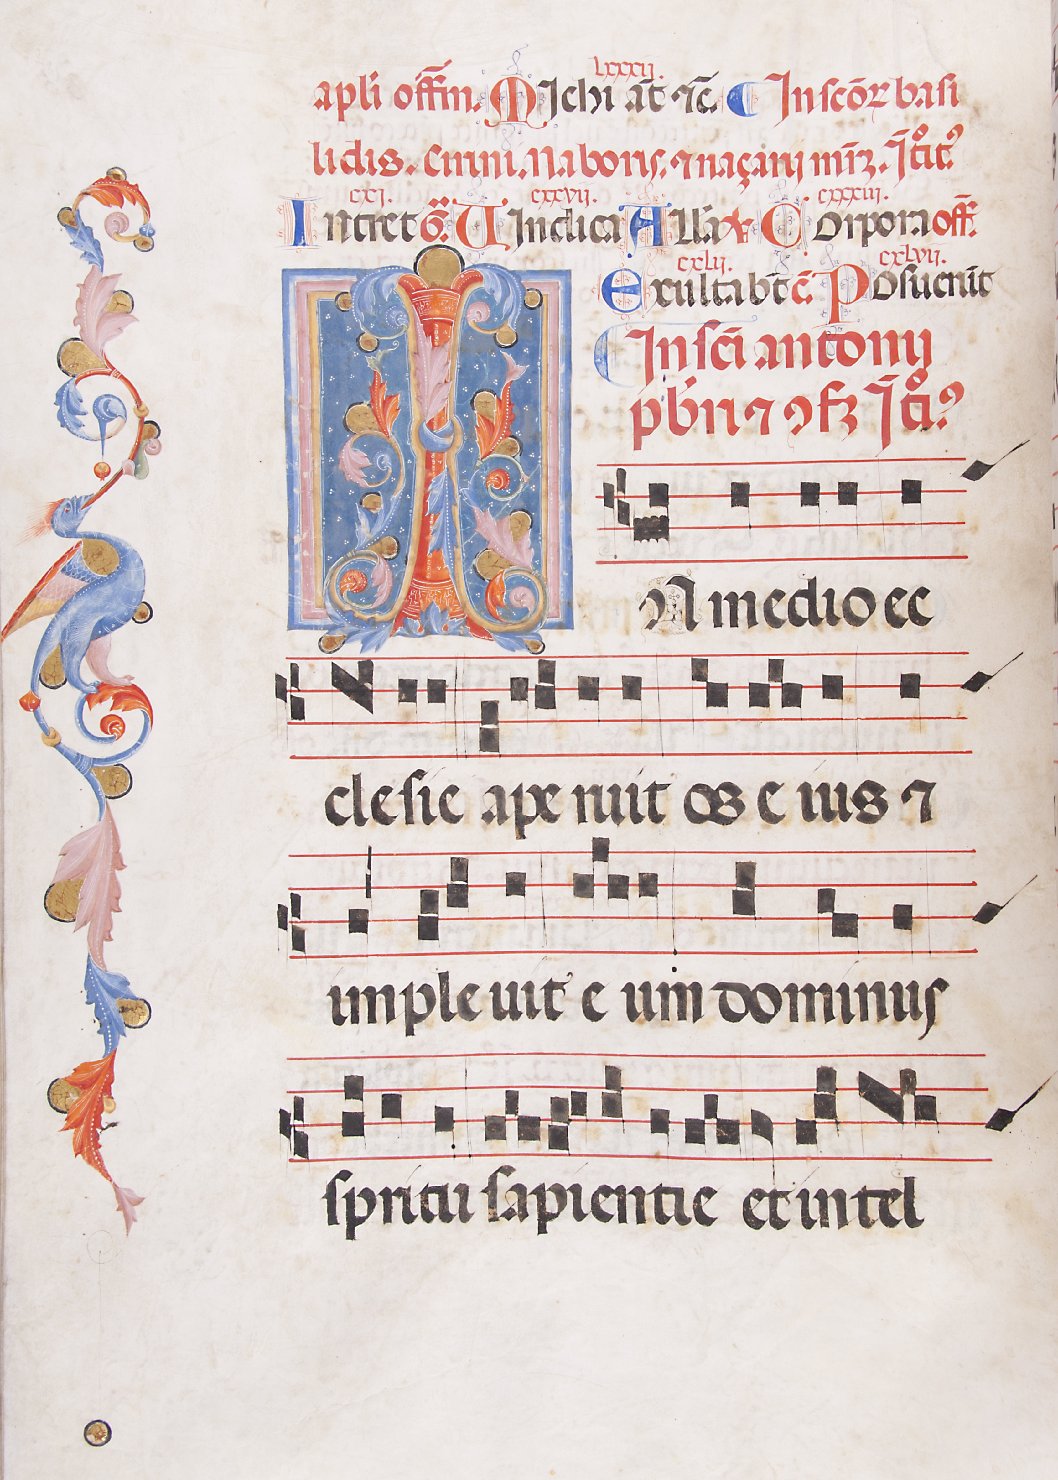 lxxxij.
apli offm. Michi aut ⁊c̄. In scōꝝ basi
lidis. Cirini. Naboris. ⁊ naçarij mr̄ꝫ. Ītꝰ
cxj. cxxvij. cxxxiii.
Intret Vindica Allā ꝟ Corpora off.
cxlij. cxlvij.
Exultabt̄ c̄. Posuerūt
In sc̄i antonij
pbr̄i ⁊ ꝯfꝫ Ītꝰ
IN medio ec
clesie ape ruit os e ius ⁊
imple uit e um dominus
spiritu sapientie et intel